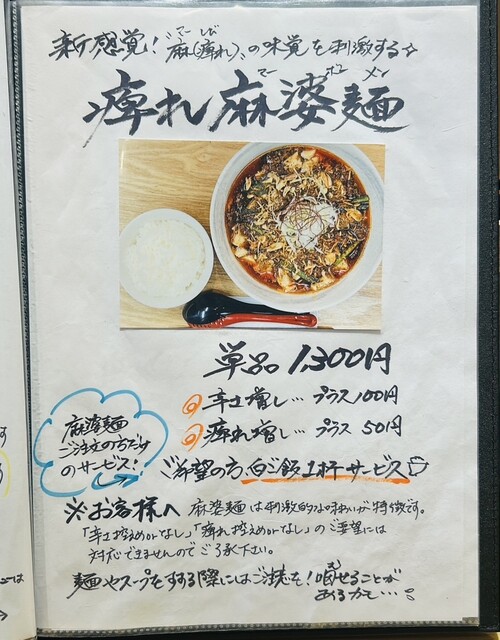 新感覚！麻(痺れ)の味覚を刺激する☆
痺れ麻婆麺
単品 1,300円
辛さ増し… プラス100円
痺れ増し… プラス 50円
ご希望の方、白ご飯1杯サービス
麻婆麺
ご注文の方だけ
のサービス！
※お客様へ 麻婆麺は刺激的な味わいが特徴です。
「辛さ控えめorなし」「痺れ控えめorなし」のご要望には
対応できませんのでご了承下さい。
麺やスープをすする際にはご注意を！咽せることが
あるかも…